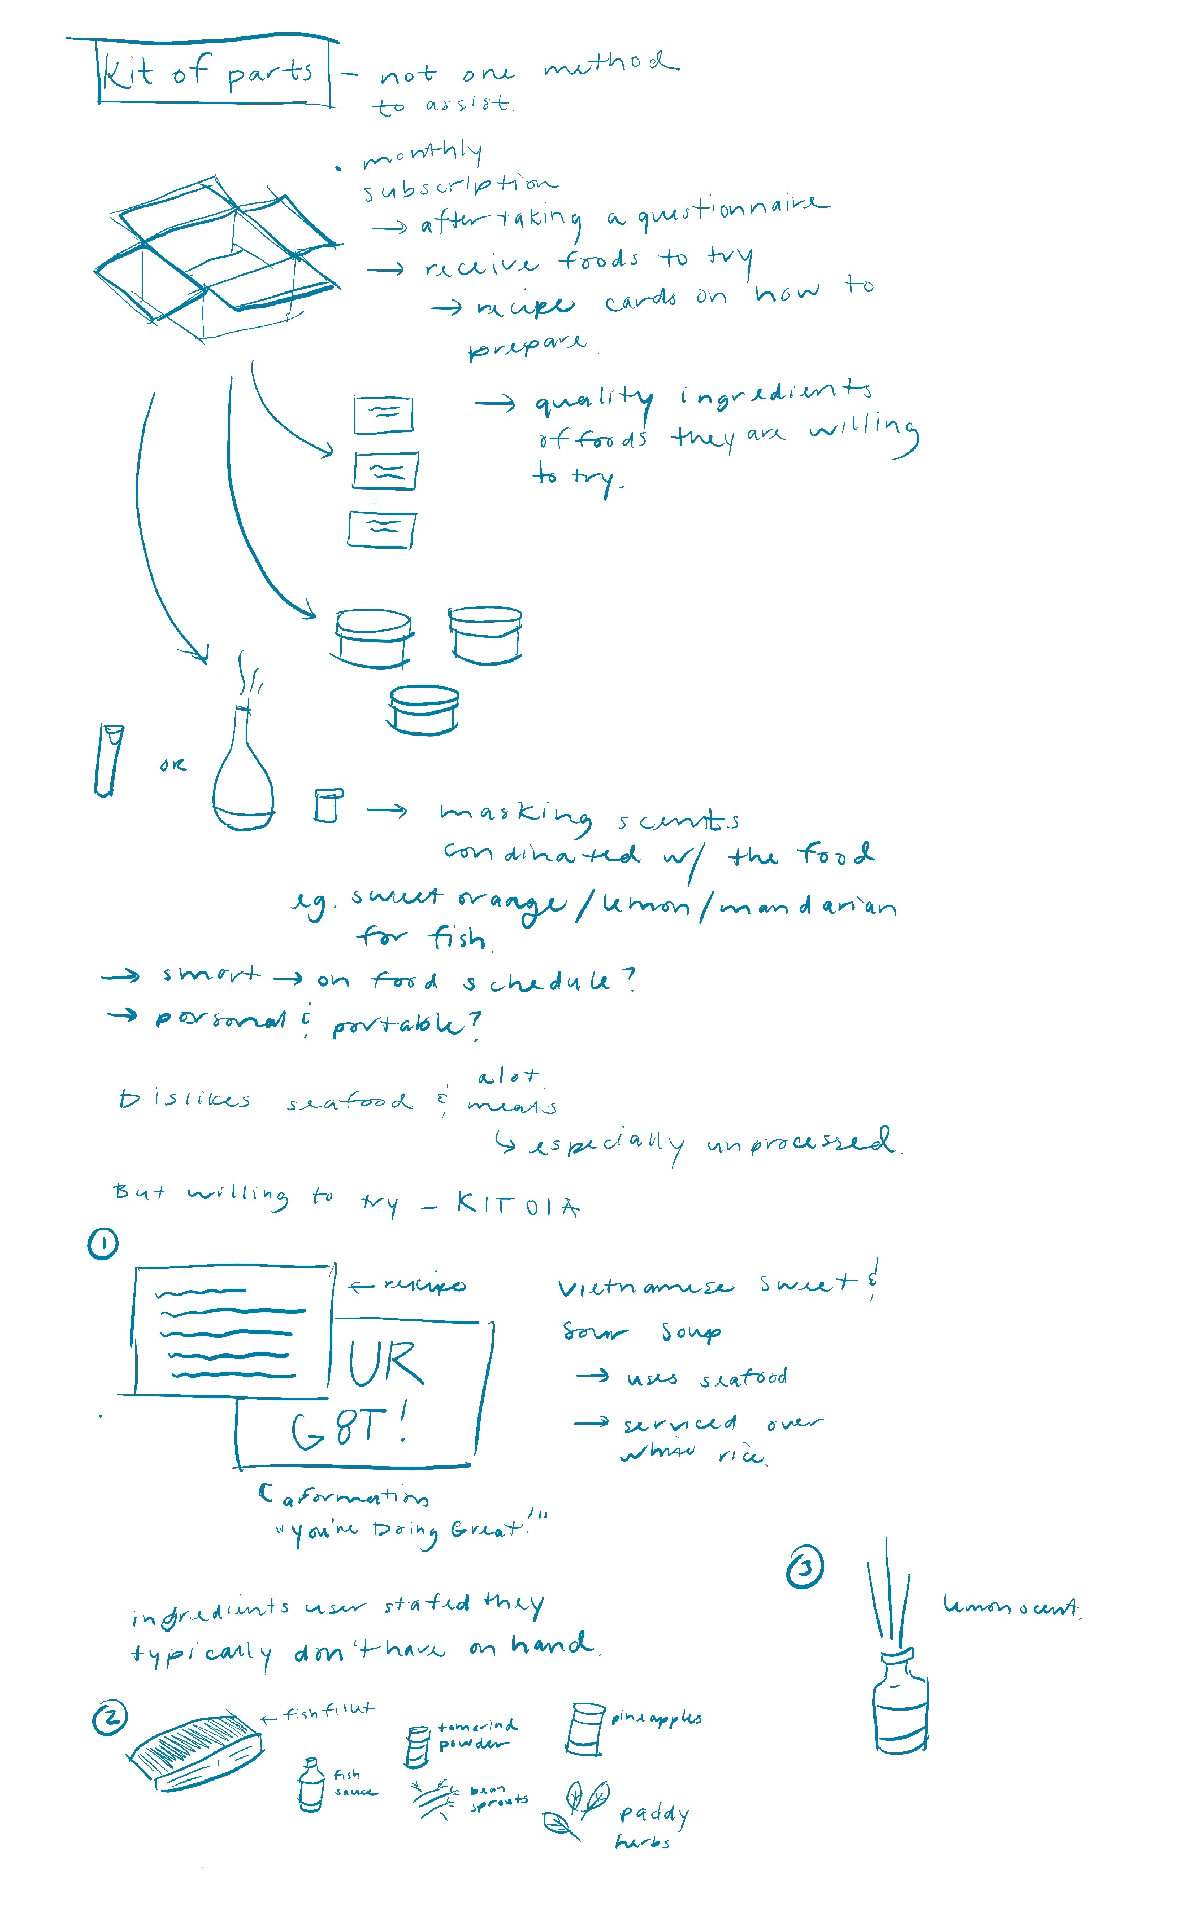 Kit of parts - not one method
to assist.
• monthly
subscription
→ after taking a questionnaire
→ receive foods to try
→ recipe cards on how to
prepare.
→ quality ingredients
of foods they are willing
to try.
or
→ masking scents
cordinated w/ the food
eg. sweet orange/lemon/mandarian
for fish.
→ smart → on food schedule?
→ personal & portable?
alot
Dislikes seafood & meats
↳ especially unprocessed.
But willing to try - KIT 01A
①
← recipe
UR
G8T!
Vietnamese sweet &
sour soup
→ uses seafood
→ serviced over
white rice.
afformation
"you're Doing Great!"
③
lemon scent.
ingredients user stated they
typically don't have on hand.
②
← fish fillet
fish
sauce
tamerind
powder
bean
sprouts
pineapples
paddy
herbs